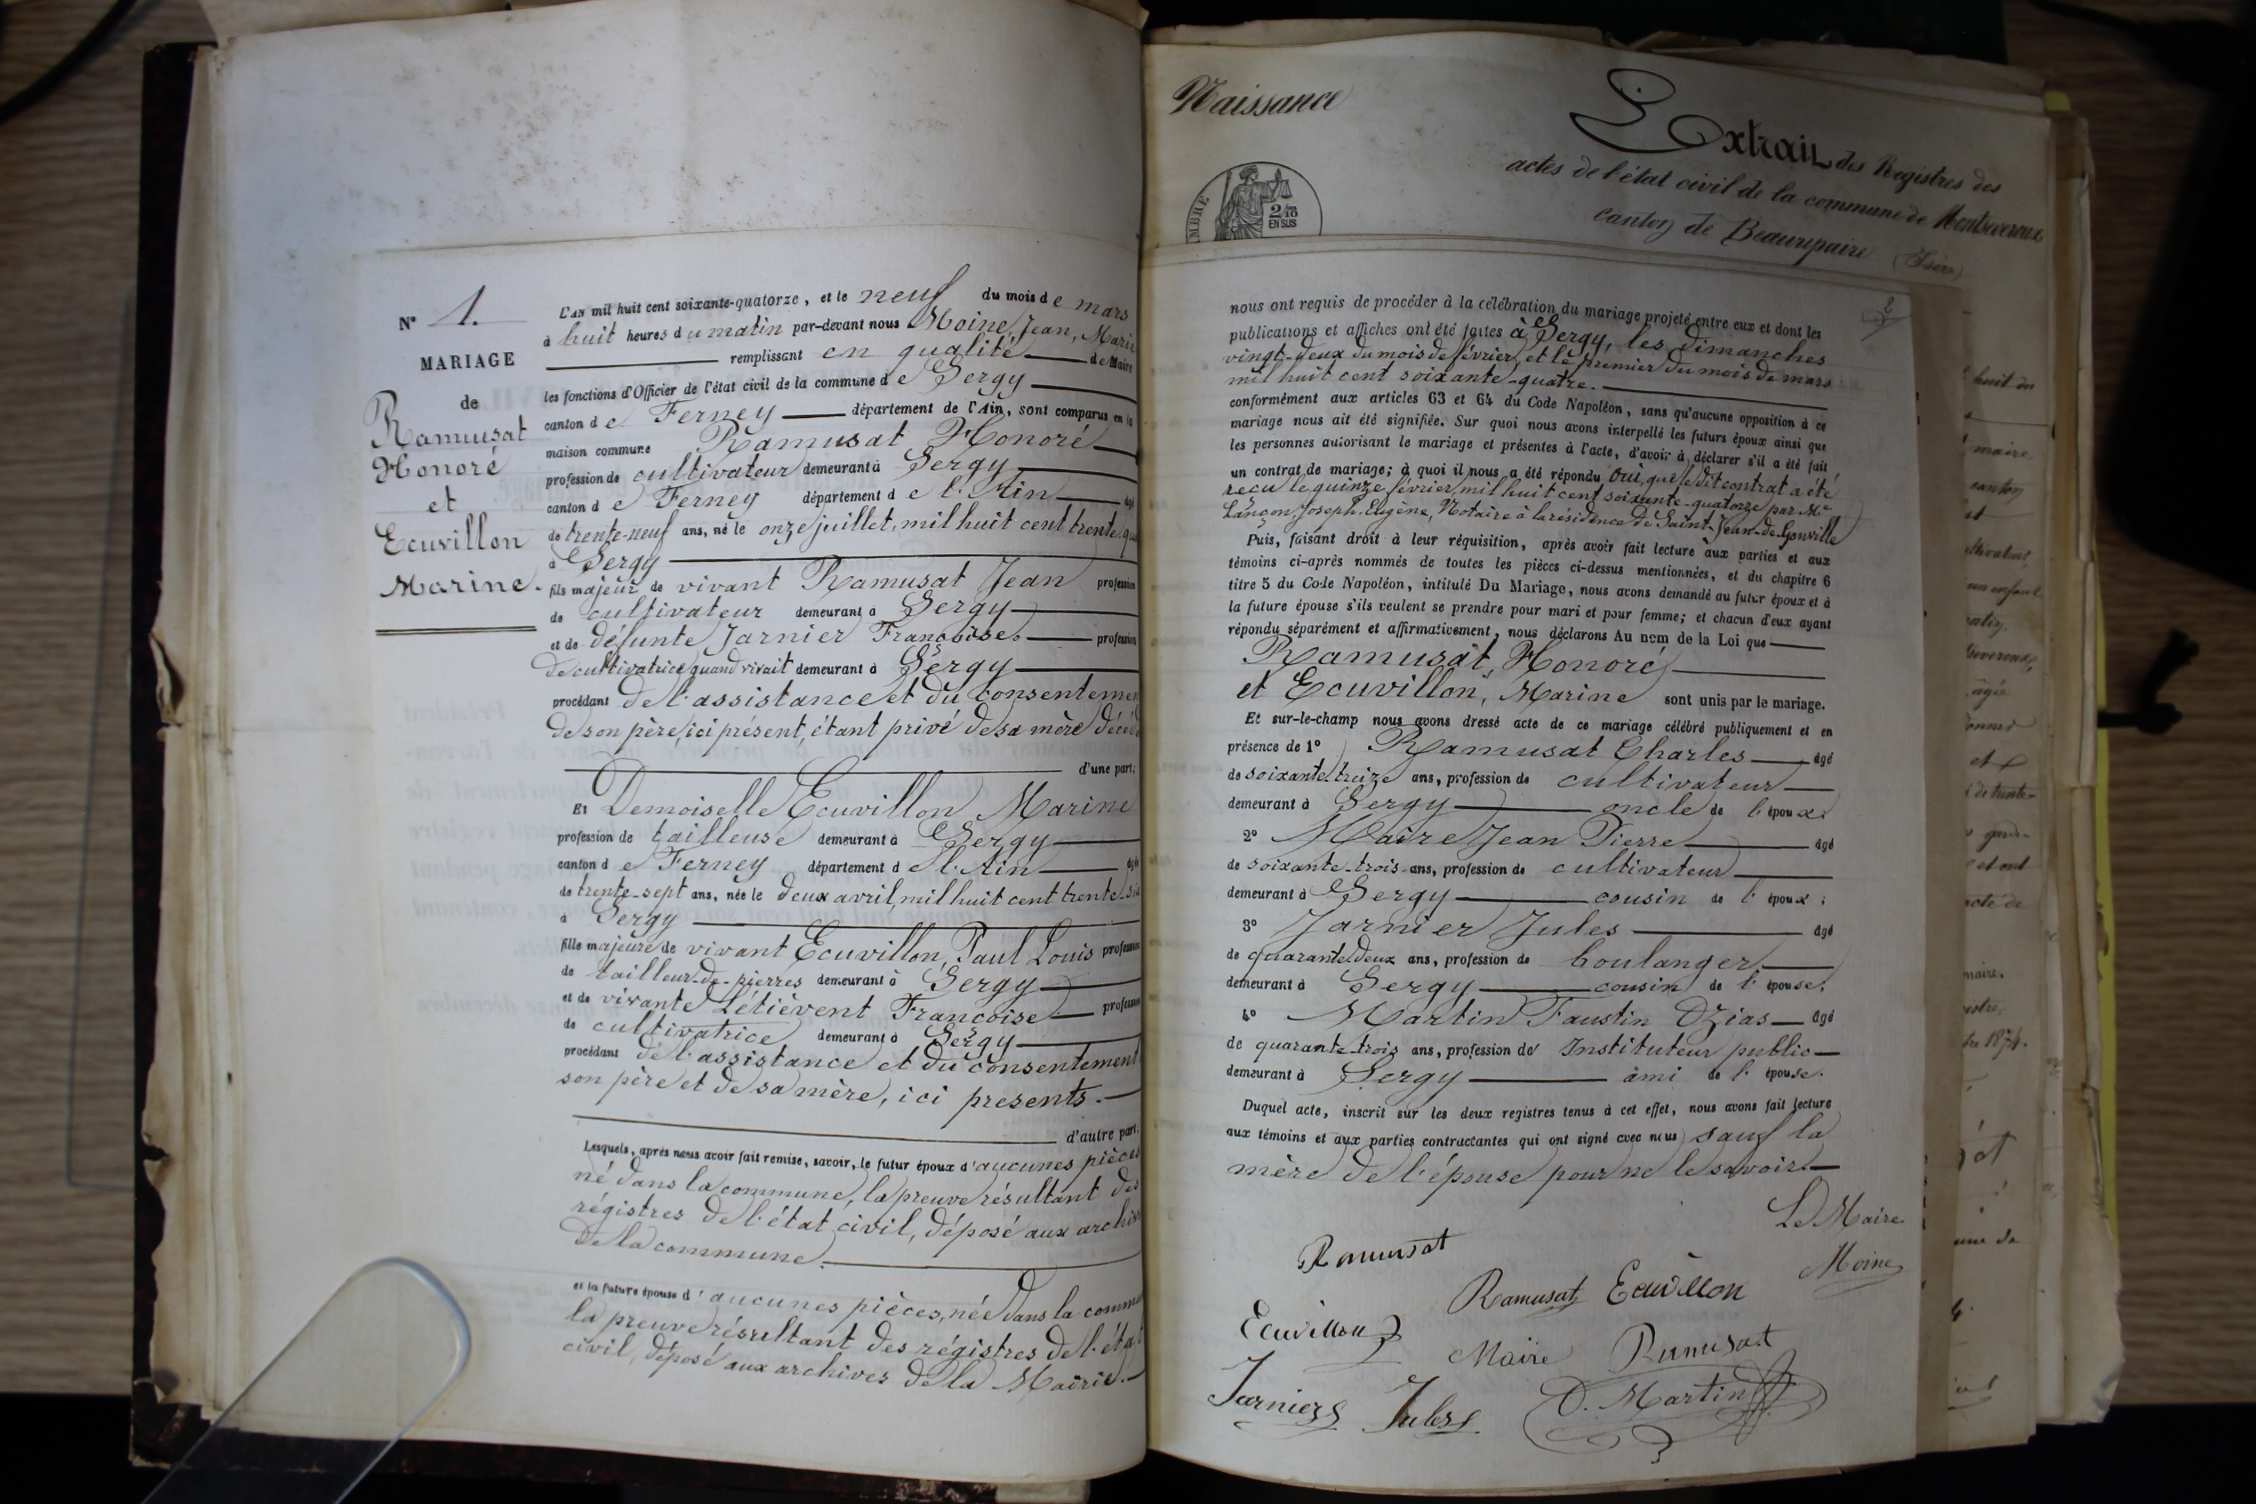 N° 1.
MARIAGE
de
Ramusat
Honoré
et
Ecuvillon
Marine.
L'AN mil huit cent soixante-quatorze, et le neuf du mois de mars
à huit heures du matin par-devant nous Moine, Jean, Marie
remplissant en qualité de Maire
les fonctions d'Officier de l'état civil de la commune de Sergy
canton de Ferney département de l'Ain, sont comparus en la
maison commune Ramusat Honoré
profession de cultivateur demeurant à Sergy
canton de Ferney département de l'Ain âgé
de trente-neuf ans, né le onze juillet, mil huit cent trente
à Sergy
fils majeur de vivant Ramusat Jean profession
de cultivateur demeurant à Sergy
et de défunte Jarnier Françoise profession
de cultivatrice quand vivait demeurant à Sergy
procédant de l'assistance et du consentement
de son père, ici présent, étant privé de sa mère
d'une part;
Et Demoiselle Ecuvillon Marine
profession de tailleuse demeurant à Sergy
canton de Ferney département de l'Ain âgée
de trente-sept ans, née le deux avril, mil huit cent trente-six
à Sergy
fille majeure de vivant Ecuvillon, Paul Louis profession
de tailleur-de-pierres demeurant à Sergy
et de vivante Létiévent Françoise profession
de cultivatrice demeurant à Sergy
procédant de l'assistance et du consentement
son père et de sa mère, ici presents.
d'autre part.
Lesquels, après nous avoir fait remise, savoir, le futur époux d'aucunes pièces
né dans la commune, la preuve résultant des
régistres de l'état civil, déposé aux archives
de la commune.
et la future épouse d'aucunes pièces, née dans la
la preuve résultant des régistres de l'état
civil, déposé aux archives de la Mairie.
Naissance
TIMBRE
2/10
EN SUS
Extrait des Registres des
actes de l'état civil de la commune de Montseveroux
canton de Beaurepaire (Isère)
nous ont requis de procéder à la célébration du mariage projeté entre eux et dont les
publications et affiches ont été faites à Sergy, les dimanches
vingt-deux du mois de février, et le premier du mois de mars
mil huit cent soixante-quatre.
conformément aux articles 63 et 64 du Code Napoléon, sans qu'aucune opposition à ce
mariage nous ait été signifiée. Sur quoi nous avons interpellé les futurs époux ainsi que
les personnes autorisant le mariage et présentes à l'acte, d'avoir à déclarer s'il a été fait
un contrat de mariage; à quoi il nous a été répondu Oui, que le dit contrat a été
reçu le quinze février, mil huit cent soixante-quatorze par Me
Lançon Joseph, Eugène, Notaire à la résidence de Saint-Jean-de-Gonville
Puis, faisant droit à leur réquisition, après avoir fait lecture aux parties et aux
témoins ci-après nommés de toutes les pièces ci-dessus mentionnées, et du chapitre 6
titre 5 du Code Napoléon, intitulé Du Mariage, nous avons demandé au futur époux et à
la future épouse s'ils veulent se prendre pour mari et pour femme; et chacun d'eux ayant
répondu séparément et affirmativement, nous déclarons Au nom de la Loi que
Ramusat, Honoré
et Ecuvillon, Marine sont unis par le mariage.
Et sur-le-champ nous avons dressé acte de ce mariage célébré publiquement et en
présence de 1° Ramusat Charles âgé
de soixante treize ans, profession de cultivateur
demeurant à Sergy oncle de l'époux.
2° Maire Jean Pierre âgé
de soixante-trois ans, profession de cultivateur
demeurant à Sergy cousin de l'époux;
3° Jarnier Jules âgé
de quarante deux ans, profession de boulanger
demeurant à Sergy cousin de l'épouse.
4° Martin Faustin Ozias âgé
de quarante-trois ans, profession de Instituteur public
demeurant à Sergy âmi de l'épouse.
Duquel acte, inscrit sur les deux registres tenus à cet effet, nous avons fait lecture
aux témoins et aux parties contractantes qui ont signé avec nous sauf la
mère de l'épouse pour ne le savoir.
Le Maire
Ramusat
Moine
Ramusat Ecuvillon
Ecuvillon
Maire Ramusat
Jarnier Jules O. Martin